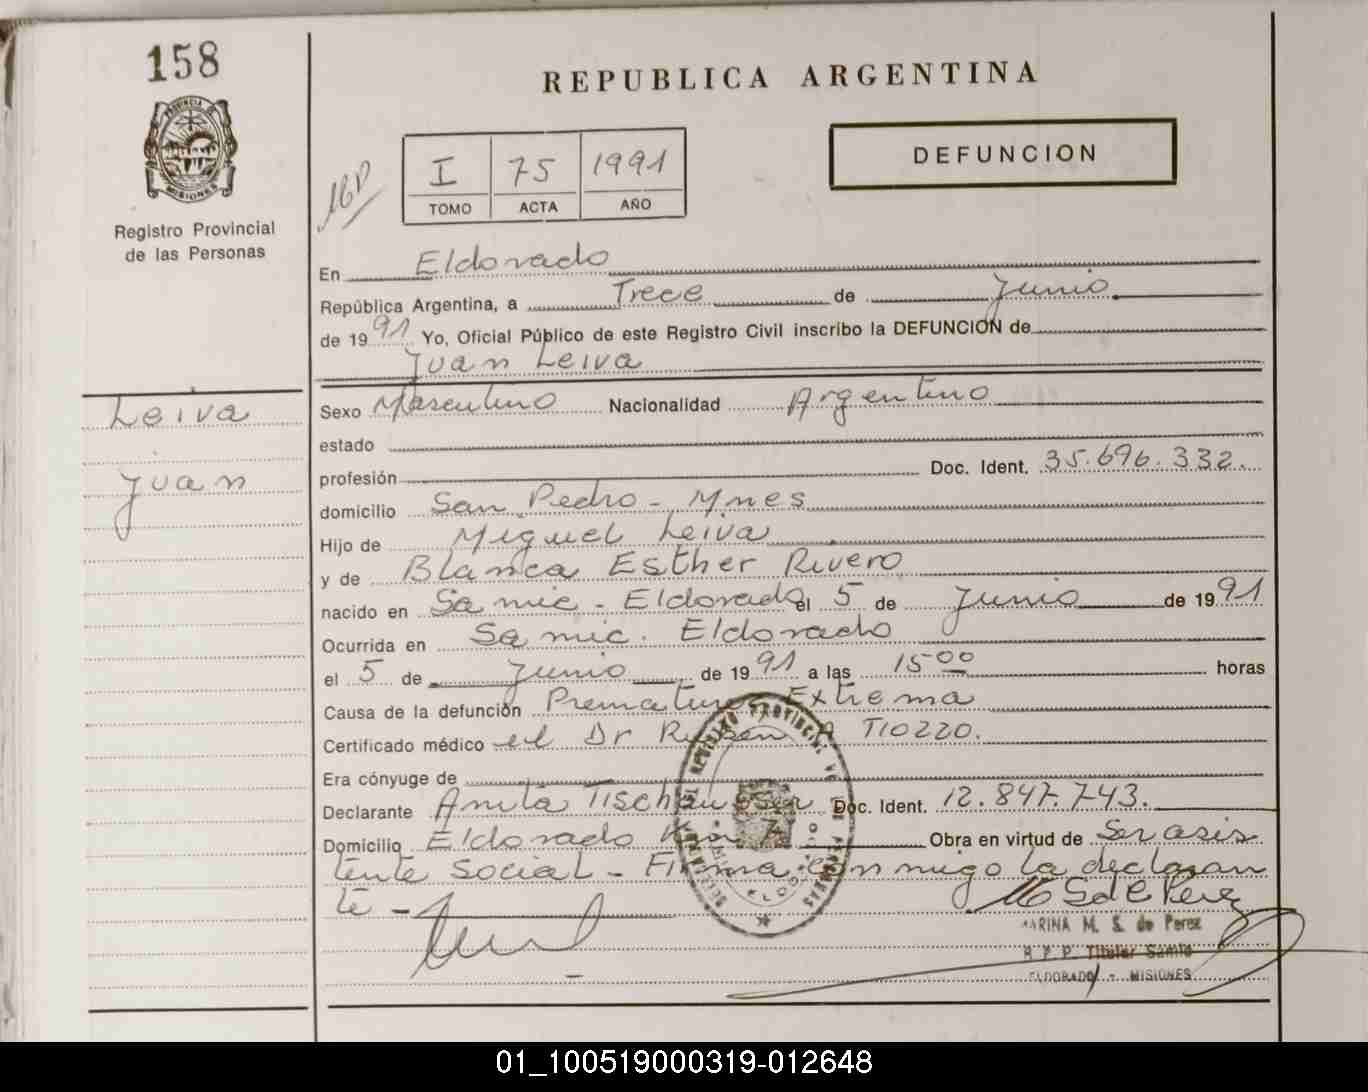 158
REPUBLICA ARGENTINA
PROVINCIA DE
MISIONES
Registro Provincial
de las Personas
I 75 1991
TOMO ACTA AÑO
DEFUNCION
En Eldorado
República Argentina, a Trece de Junio
de 1991 Yo, Oficial Público de este Registro Civil inscribo la DEFUNCION de
Juan Leiva
Leiva
Juan
Sexo Masculino Nacionalidad Argentino
estado
profesión Doc. Ident. 35.696.332.
domicilio San Pedro - Mnes
Hijo de Miguel Leiva
y de Blanca Esther Rivero
nacido en Samic - Eldorado el 5 de Junio de 1991
Ocurrida en Samic. Eldorado
el 5 de Junio de 1991 a las 15 00 horas
Causa de la defunción Prematurez Extrema
Certificado médico el Dr Ruben TIOZZO.
Era cónyuge de
Declarante Anita Tischauser Doc. Ident. 12.847.743.
Domicilio Eldorado Km 7 Obra en virtud de Ser asis
tente Social - Firma conmigo la declaran
te -
M S de Perez
MARINA M. S. de Perez
R. P. P. Titular Samic
ELDORADO - MISIONES
01_100519000319-012648